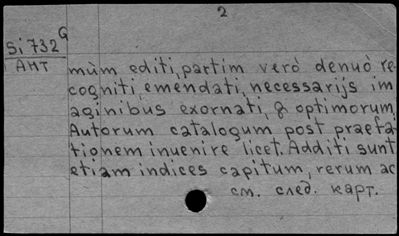 2
Si 732 G
АНТ
mùm editi, partim verò denuò re-
cogniti, emendati, necessarijs im
aginibus exornati, & optimorum
Autorum catalogum post praefa
tionem inuenire licet. Additi sunt
etiam indices capitum, rerum ac
см. след. карт.